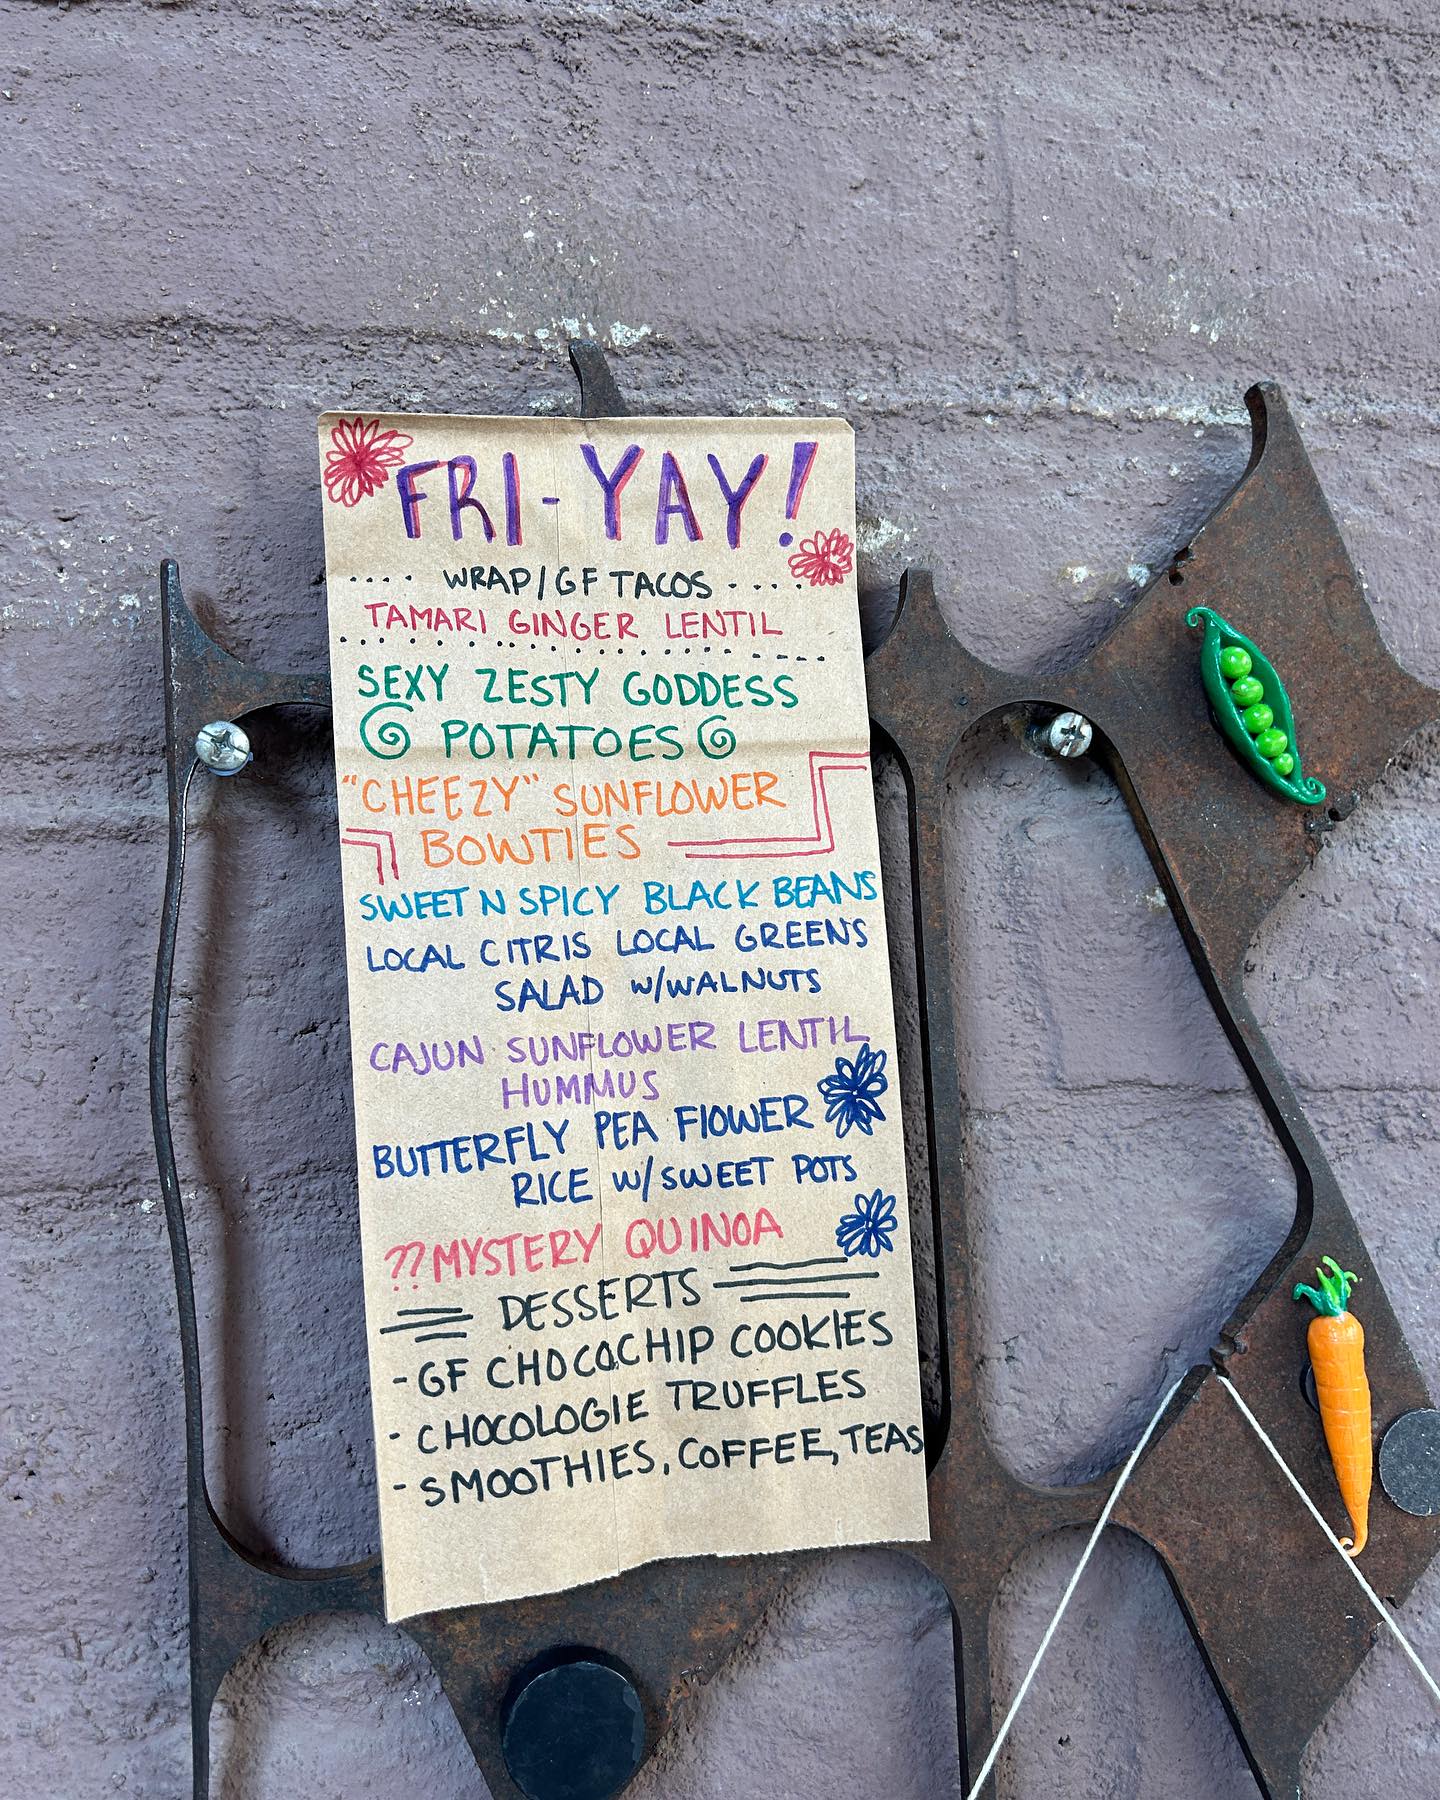 FRI-YAY!
WRAP/GF TACOS
TAMARI GINGER LENTIL
SEXY ZESTY GODDESS
POTATOES
"CHEEZY" SUNFLOWER
BOWTIES
SWEET N SPICY BLACK BEANS
LOCAL CITRIS LOCAL GREENS
SALAD W/WALNUTS
CAJUN SUNFLOWER LENTIL
HUMMUS
BUTTERFLY PEA FLOWER
RICE W/SWEET POTS
??MYSTERY QUINOA
DESSERTS
- GF CHOCOCHIP COOKIES
- CHOCOLOGIE TRUFFLES
- SMOOTHIES, COFFEE, TEAS